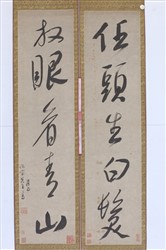 任頭生白髮
放眼看青山